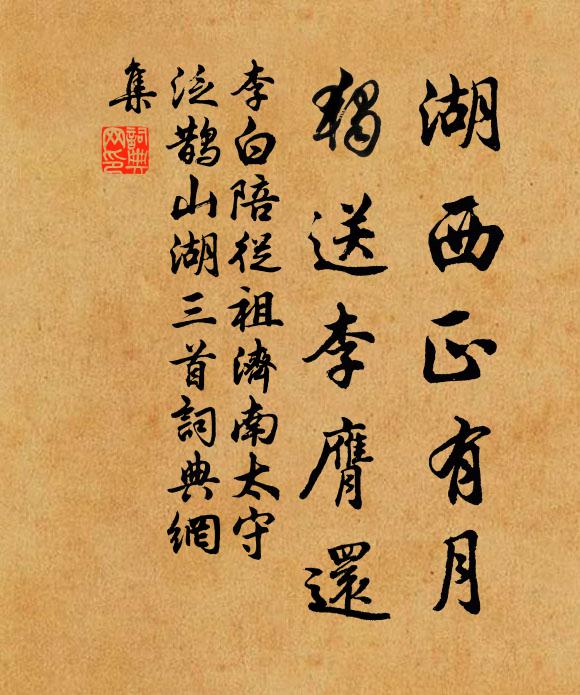 湖西正有月
獨送李膺還
李白陪從祖濟南太守
泛鵲山湖三首詞典網
集
詞典
网印